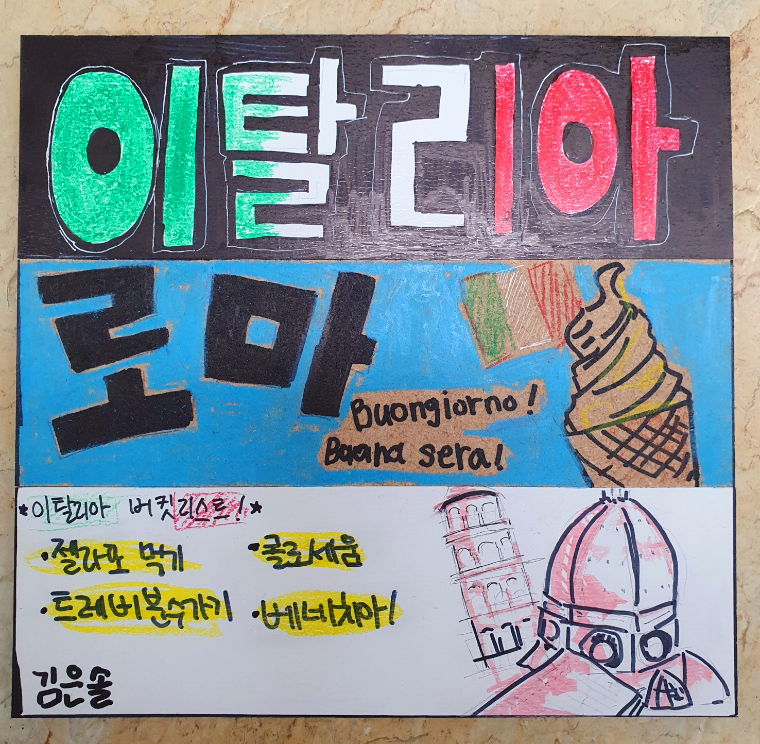 이탈리아
로마
Buongiorno!
Buona sera!
*이탈리아 버킷리스트!*
·젤라또 먹기 ·콜로세움
·트레비분수가기 ·베네치아!
김은솔